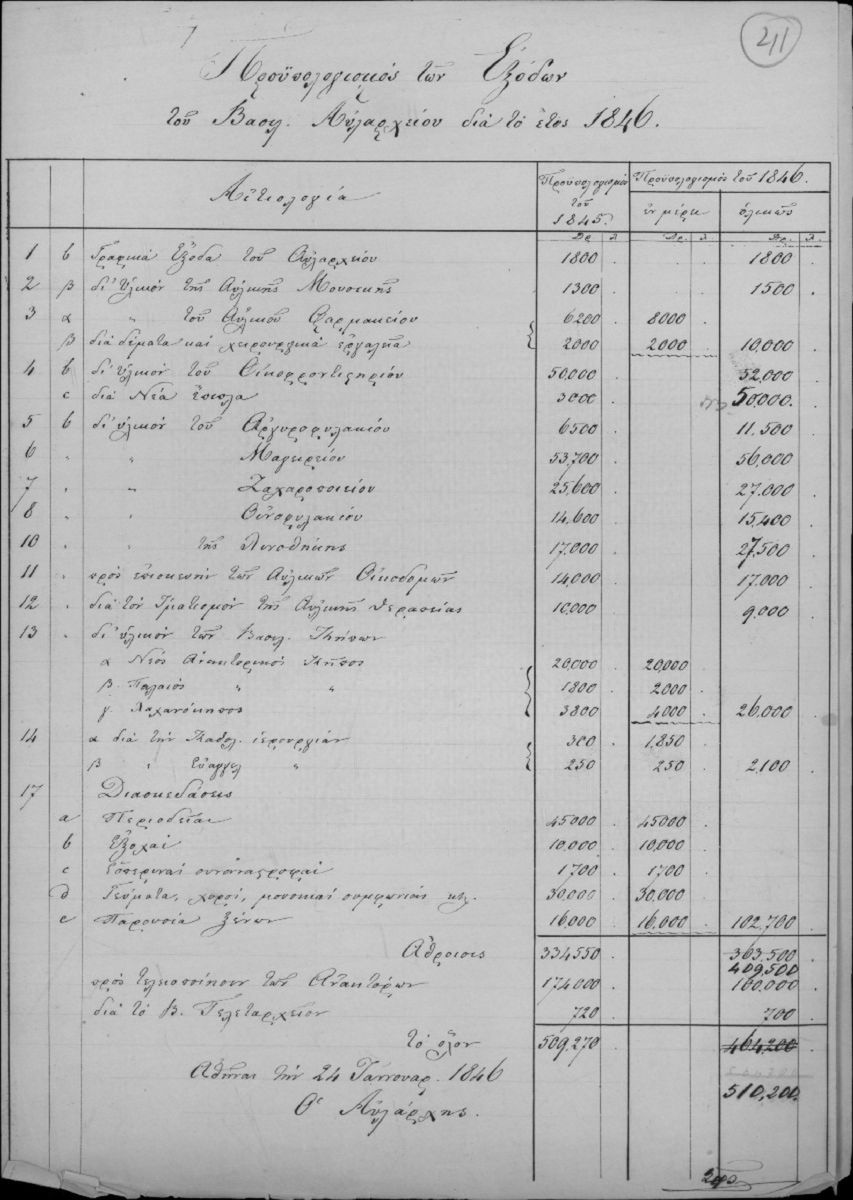 211
Προϋπολογισμός τῶν Ἐξόδων
τοῦ Βασιλ. Αὐλαρχείου διά τό ἔτος 1846.
Αἰτιολογία Προϋπολογισμός τοῦ 1845. Προϋπολογισμός τοῦ 1846.
ἐν μέρει ὁλικῶς
Δρ. λ Δρ. λ Δρ. λ.
1 b Γραφικά Ἔξοδα τοῦ Αὐλαρχείου 1800 . . . 1800 .
2 β δι' ὑλικόν τῆς Αὐλικῆς Μουσικῆς 1300 . 1500 .
3 α „ τοῦ Αὐλικοῦ Φαρμακείου 6200 . 8000 .
β διά δέματα καί χειρουργικά ἐργαλεῖα 2000 2000 . 10,000 .
4 b δι' ὑλικόν τοῦ Οἰκοφροντιστηρίου 50.000 . 52,000
c διά Νέα ἔπιπλα 3000 . 50.000.
5 b δι' ὑλικόν τοῦ Ἀργυροφυλακίου 6500 11.500 .
6 „ „ Μαγειρείου 53,700 . 56,000 .
7 „ „ Ζαχαροποιείου 25,600 . 27.000 .
8 „ „ Οἰνοφυλακίου 14,600 . 15,400 .
10 „ „ τῆς Λινοθήκης 17,000 . 27,500 .
11 „ πρός ἐπισκευήν τῶν Αὐλικῶν Οἰκοδομῶν 14,000 . 17.000 .
12 „ διά τόν Ἱματισμόν τῆς Αὐλικῆς θεραπείας 10.000 9.000 .
13 „ δι' ὑλικόν τῶν Βασιλ. Κήπων
α Νέος Ἀνακτορικός Κῆπος 20,000 . 20,000 .
β. Παλαιός „ „ 1800 . 2000 .
γ. Λαχανόκηπος 3800 . 4000 . 26.000 .
14 α διά τήν Καθολ. ἱερουργίαν 300 . 1,850 .
β „ Εὐαγγελ „ 250 . 250 . 2,100 .
17 Διασκεδάσεις
a Περιοδεῖαι 45000 . 45000 .
b Ἐξοχαί 10,000 . 10,000 .
c Ἑσπεριναί συναναστροφαί 1700 . 1700 .
d Γεύματα, χοροί, μουσικαί συμφωνίαι κτλ. 30,000 . 30.000
e Παρουσία ξένων 16,000 . 16,000 . 102,700 .
Ἄθροισις 334550 363,500
409,500
πρός τελειοποίησιν τῶν Ἀνακτόρων 174,000 . 100.000 .
διά τό Β. Τελεταρχεῖον 720 . 700 .
τό ὅλον 509,270 464,200
510,200.
Ἀθῆναι τήν 24 Ἰαννουαρ. 1846
Ὁ Αὐλάρχης.